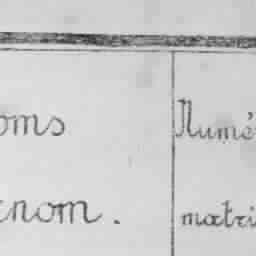 oms
enom.
Numé
matri